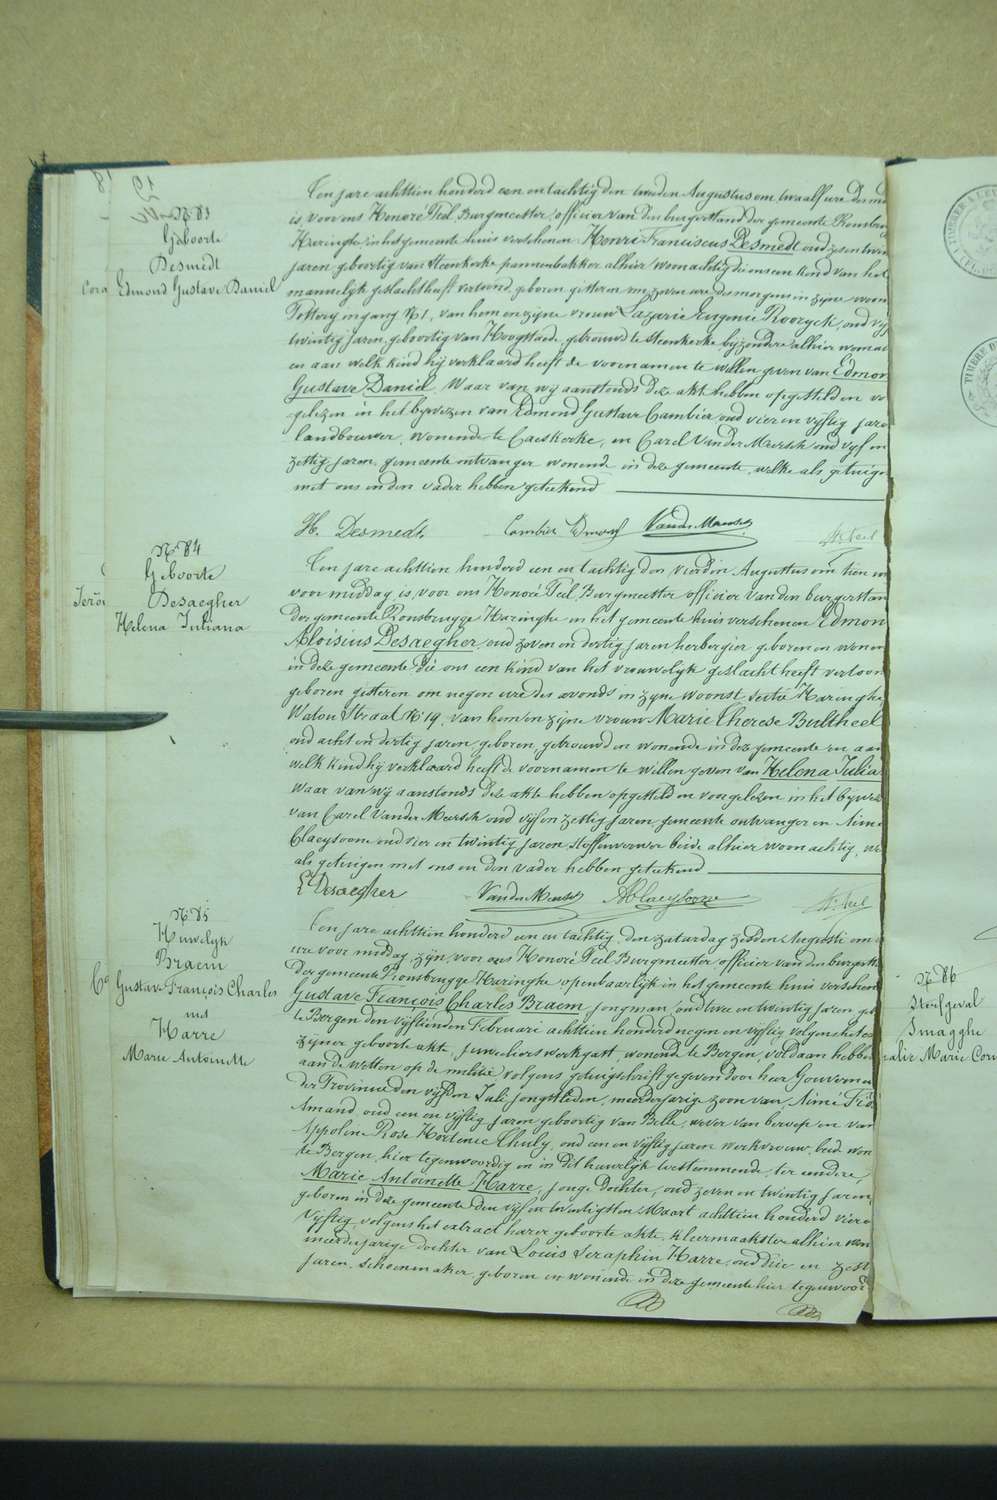 N. 83
Geboorte
Desmedt
Edmond Gustave Daniel
Ten jare achttien honderd een en tachtig den tweeden Augustus om twaalf ure des
is voor ons Honoré Teel Burgmeester, officier van den burgerstand der gemeente
Haringhe in het gemeente huis verschenen Henri Franciscus Desmedt oud zes en
jaren geboortig van Steenkerke pannenbakker alhier woonachtig die ons een kind van het
mannelijk geslacht heeft vertoond, geboren gisteren om zeven ure des morgens in zijne
N. 1, van hem en zijne vrouw Lazarie Eugenie Roeryck, oud
twintig jaren, geboortig van Hoogstade, getrouwd te Steenkerke bijzondere alhier
en aan welk kind hij verklaard heeft de voornamen te willen geven van Edmon
Gustave Daniel. Waar van wij aanstonds deze akt hebben opgesteld en vo
gelezen in het bijwezen van Edmond Gustave Cambier, oud vier en vijftig jare
landbouwer, wonende te Caeskerke, en Carel Van der Meersch oud vijf en
zestig jaren, gemeente ontvanger wonende in deze gemeente, welke als getuige
met ons en den vader hebben geteekend
H. Desmedt. Cambier Edmond Vander Meersch H. Teel
N. 84
Geboorte
Desaegher
Helena Juliana
Ten jare achttien honderd een en tachtig den vierden Augustus om tien
voor middag is voor ons Honoré Teel Burgmeester officier van den burgerstan
der gemeente Ronsbrugge Haringhe in het gemeente huis verschenen Edmon
Aloisius Desaegher, oud zeven en dertig jaren herbergier geboren en wonen
in deze gemeente die ons een kind van het vrouwelijk geslacht heeft vertoon
geboren gisteren om negen ure des avonds in zijne woonst sectie Haringhe
Watou Straat N. 19, van hem en zijne vrouw Marie Therese Bultheel
oud acht en dertig jaren geboren, getrouwd en wonende in deze gemeente en aan
welk kind hij verklaard heeft de voornamen te willen geven van Helena Julia
waar van wij aanstonds deze akte hebben opgesteld en voorgelezen in het bijwez
van Carel Vander Meersch oud vijf en zestig jaren gemeente ontvanger en Aimé
Claeysoone oud vier en twintig jaren stoffenverwer beide alhier woonachtig, we
als getuigen met ons en den vader hebben geteekend
E Desaegher Vander Meersch A Claeysoone H. Teel
N. 85
Huwelijk
Braem
Gustave François Charles
met
Harre
Marie Antoinette
Ten jare achttien honderd een en tachtig, den zaturdag zesden Augusti om
ure voor middag zijn voor ons Honoré Teel Burgmeester officier van den burgerst
der gemeente Ronsbrugge Haringhe openbaarlijk in het gemeente huis verschen
Gustave François Charles Braem, jongman, oud twee en twintig jaren geb
te Bergen den vijftienden Februari achttien honderd negen en vijftig volgens het
zijner geboorte akte, juweelierswerkgast, wonende te Bergen, voldaan hebben
aan de wetten op de militie volgens getuigschrift gegeven door heer Gouverne
der Provincie den vijfden Juli jongstleden, meerderjarige zoon van Aimé
Amand, oud een en vijftig jaren geboortig van Belle, wever van beroep en van
Appoline Rose Hortence Thuly, oud een en vijftig jaren werkvrouw, beide won
te Bergen, hier tegenwoordig en in dit huwelijk toestemmende, ter andere,
Marie Antoinette Harre, jonge dochter, oud zeven en twintig jaren,
geboren in deze gemeente den vijf en twintigsten Maart achttien honderd vier
vijftig, volgens het extract harer geboorte akte, kleermaakster alhier won
meerderjarige dochter van Louis Seraphin Harre, oud drie en zest
jaren, schoenmaker, geboren en wonende in deze gemeente hier tegenwoor
N. 86
Sterfgeval
Smagghe
Marie